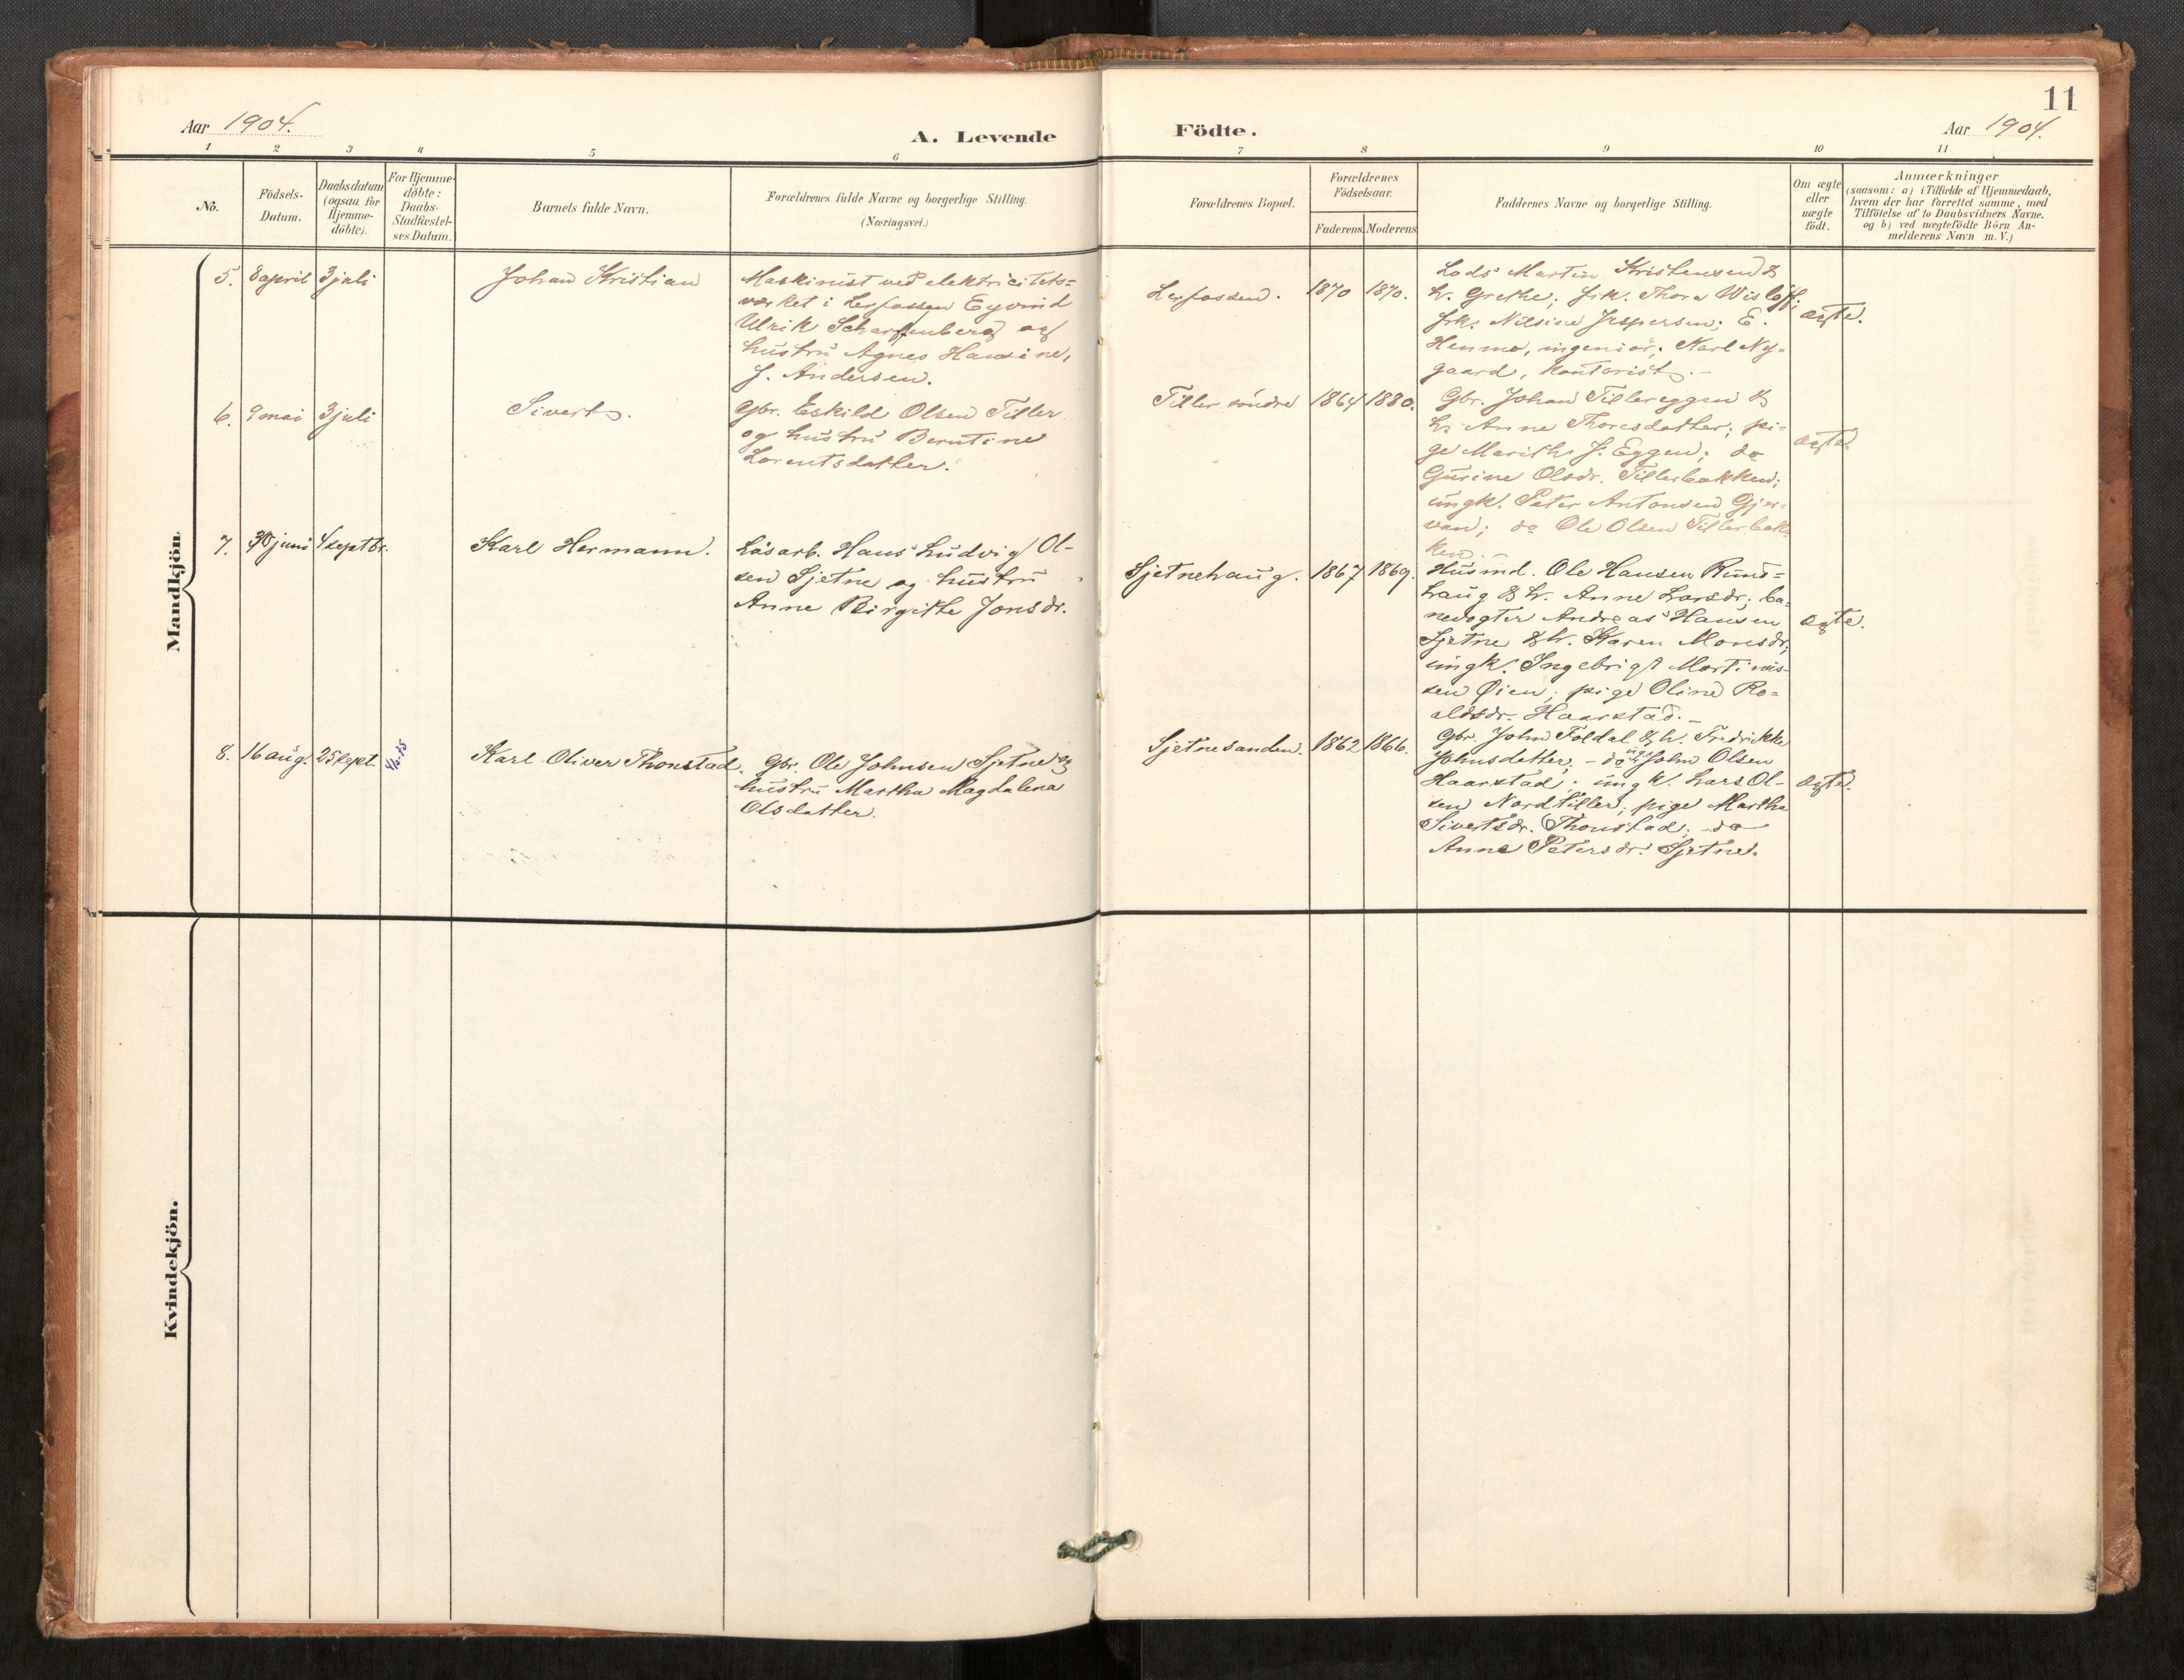 11
Aar 1904.
A. Levende
Födte.
Aar 1904.
1 2 3 4 5 6 7 8 9 10 11
No.
Födsels-
Datum.
Daabsdatum
(ogsaa for
Hjemme-
döbte).
For Hjemme-
döbte:
Daabs-
Stadfæstel-
ses Datum.
Barnets fulde Navn.
Forældrenes fulde Navne og borgerlige Stilling.
(Næringsvei.)
Forældrenes Bopæl.
Forældrenes
Födselsaar.
Faderens. Moderens.
Faddernes Navne og borgerlige Stilling.
Om ægte
eller
uægte
födt.
Anmærkninger
(saasom: a) i Tilfælde af Hjemmedaab,
hvem der har forrettet samme, med
Tilföielse af to Daabsvidners Navne.
og b) ved uægtefödte Börn An-
melderens Navn m. V.)
Mandkjön.
5. 8 april 3 juli
Johan Kristian
Maskinist ved elektricitets-
værket i Lerfossen Eyvind
Ulrik Scharffenberg og
hustru Agnes Hansine,
f. Andersen.
Lerfossen. 1870 1870.
Lods Martin Kristensen &
h. Grethe; frk. Thora Wisløff;
frk. Nilsine Jespersen; E.
Henmo, ingeniör; Karl Ny-
gaard, kontorist. -
ægte.
6. 9 mai 3 juli
Sivert.
Gbr. Eskild Olsen Tiller
og hustru Berntine
Lorentsdatter.
Tiller söndre 1864 1880.
Gbr. Johan Tillereggen &
h. Anne Thoresdatter; pi-
ge Marith J. Eggen; do
Gurine Olsdr. Tillerbakken;
ungk. Peter Antonsen Gjer-
van; do Ole Olsen Tillerbak-
ken. -
ægte.
7. 30 juni 4 septbr.
Karl Hermann.
Lösarb. Hans Ludvig Ol-
sen Sjetne og hustru
Anne Birgitte Jonsdr.
Sjetnehaug. 1867 1869.
Husmd. Ole Hansen Rund-
haug & h. Anne Larsdr; ba-
nevogter Andreas Hansen
Sjetne & h. Karen Monsdr;
ungk. Ingebrigt Martinus-
sen Øien; pige Oline Ro-
aldsdr. Haarstad. -
ægte.
8. 16 aug. 25 sept.
Karl Oliver Thonstad.
Gbr. Ole Johnsen Sjetne og
hustru Martha Magdalena
Olsdatter.
Sjetnesanden. 1862 1866.
Gbr. John Foldal & h. Fredrikke
Johnsdatter; - do John Olsen
Haarstad; ungk. Lars Ol-
sen Nordtiller; pige Martha
Sivertsdr. Thonstad; do
Anne Petersdr. Sjetne.
ægte.
Kvindekjön.